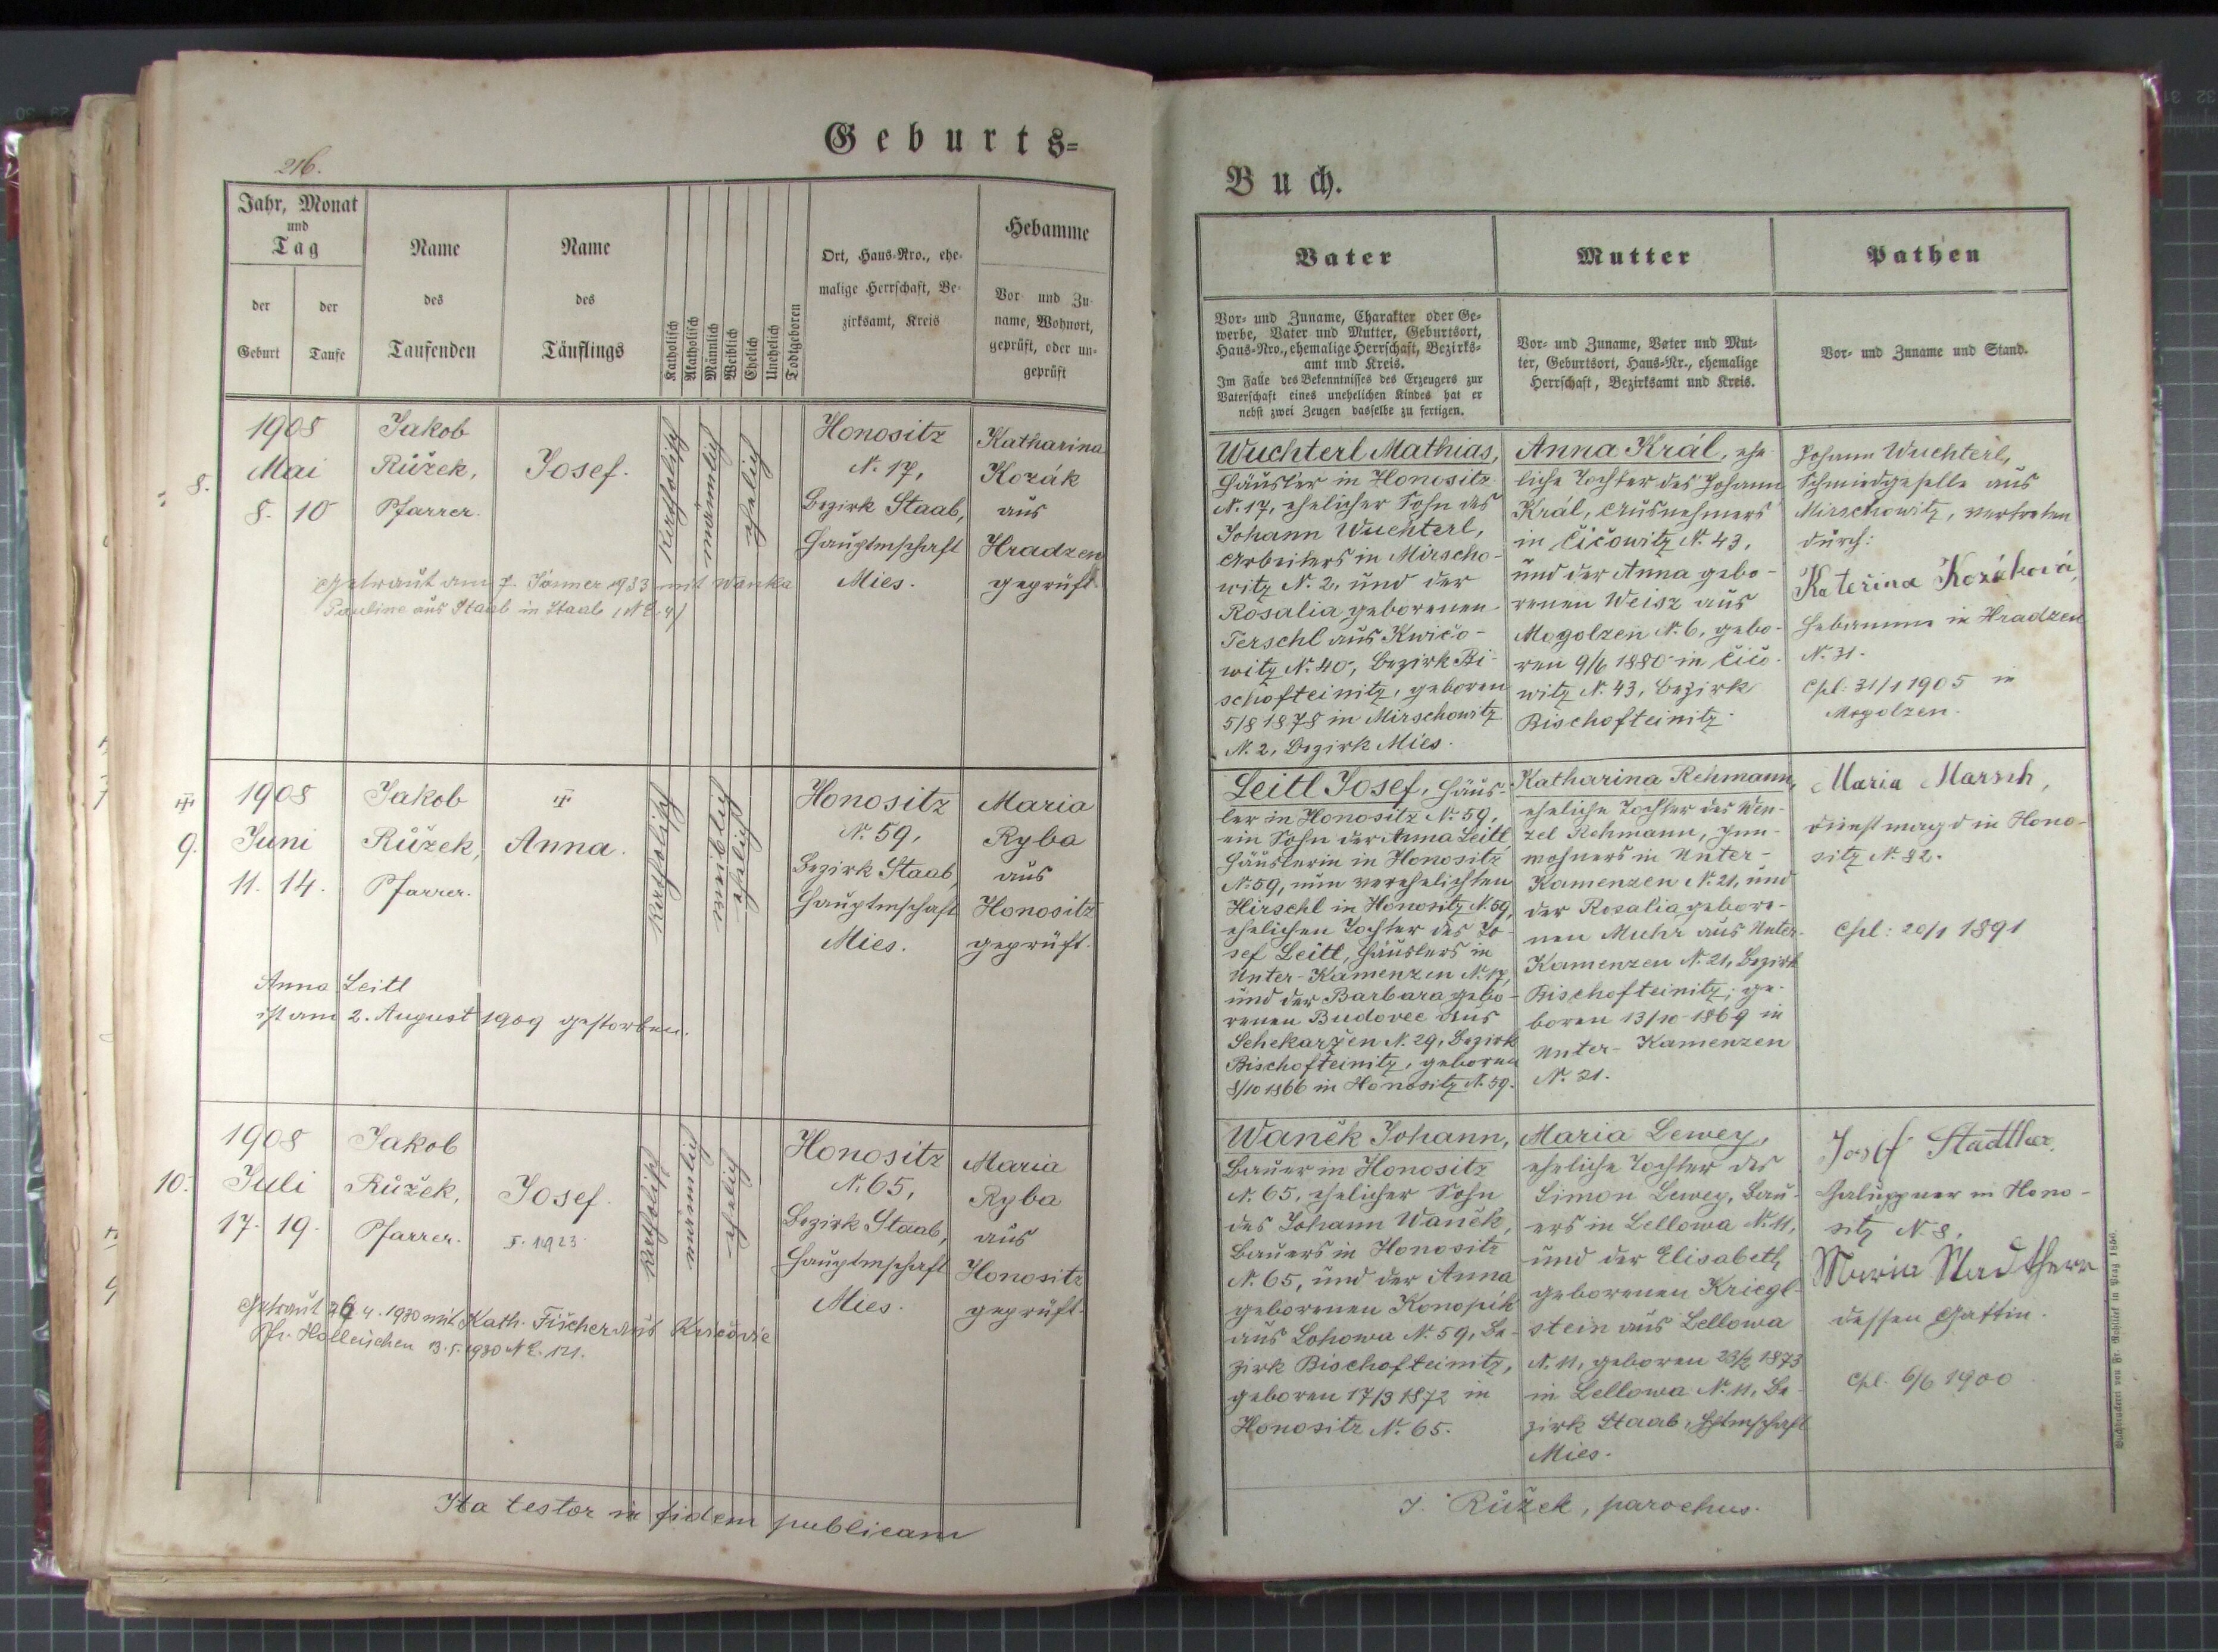 216.
Geburts=
Jahr, Monat
und
Tag
der
Geburt
der
Taufe
Name
des
Taufenden
Name
des
Täuflings
Katholisch
Akatholisch
Männlich
Weiblich
Ehelich
Unehelich
Todtgeboren
Ort, Haus=Nro., ehe-
malige Herrschaft, Be-
zirksamt, Kreis
Hebamme
Vor- und Zu-
name, Wohnort,
geprüft, oder un-
geprüft
8.
1908
Mai
8. 10
Jakob
Růžek,
Pfarrer.
Josef.
katholisch
männlich
ehelich
Honositz
N. 17,
Bezirk Staab,
Hauptmschaft
Mies.
Katharina
Kozák
aus
Hradzen
geprüft.
Getraut am 7. Jänner 1933 mit Wanka
Pauline aus Staab in Staab
9.
1908
Juni
11. 14.
Jakob
Růžek,
Pfarrer.
Anna.
katholisch
weiblich
ehelich
Honositz
N. 59,
Bezirk Staab,
Hauptmschaft
Mies.
Maria
Ryba
aus
Honositz
geprüft.
Anna Leitl
ist am 2. August 1909 gestorben.
10.
1908
Juli
17. 19.
Jakob
Růžek,
Pfarrer.
Josef.
katholisch
männlich
ehelich
Honositz
N. 65,
Bezirk Staab,
Hauptmschaft
Mies.
Maria
Ryba
aus
Honositz
geprüft.
Getraut 4. 1930 mit Kath. Fischer aus
Pfr. Holleischen 13. 5. 1930 N E. 121.
Ita testor in fidem publicam
Buch.
Vater
Vor- und Zuname, Charakter oder Ge-
werbe, Vater und Mutter, Geburtsort,
Haus=Nro., ehemalige Herrschaft, Bezirks-
amt und Kreis.
Im Falle des Bekenntnisses des Erzeugers zur
Vaterschaft eines unehelichen Kindes hat er
nebst zwei Zeugen dasselbe zu fertigen.
Mutter
Vor- und Zuname, Vater und Mut-
ter, Geburtsort, Haus=Nr., ehemalige
Herrschaft, Bezirksamt und Kreis.
Pathen
Vor- und Zuname und Stand.
Wuchterl Mathias,
Häusler in Honositz
N. 17, ehelicher Sohn des
Johann Wuchterl,
Arbeiters in Mirscho-
witz N. 2, und der
Rosalia geborenen
Terschl aus Kwičo-
witz N. 40, Bezirk Bi-
schofteinitz, geboren
5/8 1878 in Mirschowitz
N. 2, Bezirk Mies.
Anna Král, ehe-
liche Tochter des Johann
Král, Ausnehmers
in Čičowitz N. 43,
und der Anna gebo-
renen Weisz aus
Mogolzen N. 6, gebo-
ren 9/6 1880 in Čičo-
witz N. 43, Bezirk
Bischofteinitz.
Johann Wuchterl,
Schmiedgeselle aus
Mirschowitz, vertreten
durch:
Kateřina Kozáková,
Hebamme in Hradzen
N. 31.
Cpl: 31/1 1905 in
Mogolzen.
Leitl Josef, Häus-
ler in Honositz N. 59,
ein Sohn der Anna Leitl
Häuslerin in Honositz
N. 59, nun verehelichten
Hirschl in Honositz N. 59,
ehelichen Tochter des Jo-
sef Leitl, Häuslers in
Unter-Kamenzen N. 17,
und der Barbara gebo-
renen Budovec aus
Schekaržen N. 29, Bezirk
Bischofteinitz, geboren
8/10 1866 in Honositz N. 59.
Katharina Rehmann,
eheliche Tochter des Wen-
zel Rehmann, Inn-
wohners in Unter-
Kamenzen N. 21, und
der Rosalia gebore-
nen Muhr aus Unter-
Kamenzen N. 21, Bezirk
Bischofteinitz, ge-
boren 13/10 1869 in
Unter-Kamenzen
N. 21.
Maria Marsch,
Dienstmagd in Hono-
sitz N. 82.
Cpl: 20/1 1891
Waněk Johann,
Bauer in Honositz
N. 65, ehelicher Sohn
des Johann Waněk,
Bauers in Honositz
N. 65, und der Anna
geborenen Konopik
aus Lohowa N. 59, Be-
zirk Bischofteinitz,
geboren 17/3 1872 in
Honositz N. 65.
Maria Lewey,
eheliche Tochter des
Simon Lewey, Bau-
ers in Lellowa N. 11,
und der Elisabeth
geborenen Kriegl-
stein aus Lellowa
N. 11, geboren 23/2 1873
in Lellowa N. 11, Be-
zirk Staab, Hptmschaft
Mies.
Josef Stadtherr
Chaluppner in Hono-
sitz N. 8.
Maria Stadtherr
dessen Gattin.
Cpl. 6/6 1900
J. Růžek, parochus.